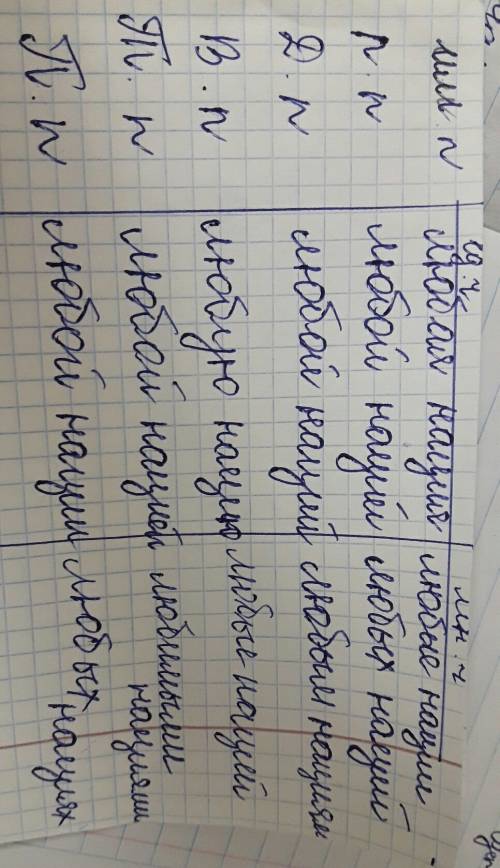 ед. ч мн. ч
им. п любая нация любые нации
р. п любой нацией любых наций
Д. п любой наций любым нациям
В. п люблую нацию любые нацией
Т. п любой нацией любимыми
нациями
П. п любой нации любых
нациях